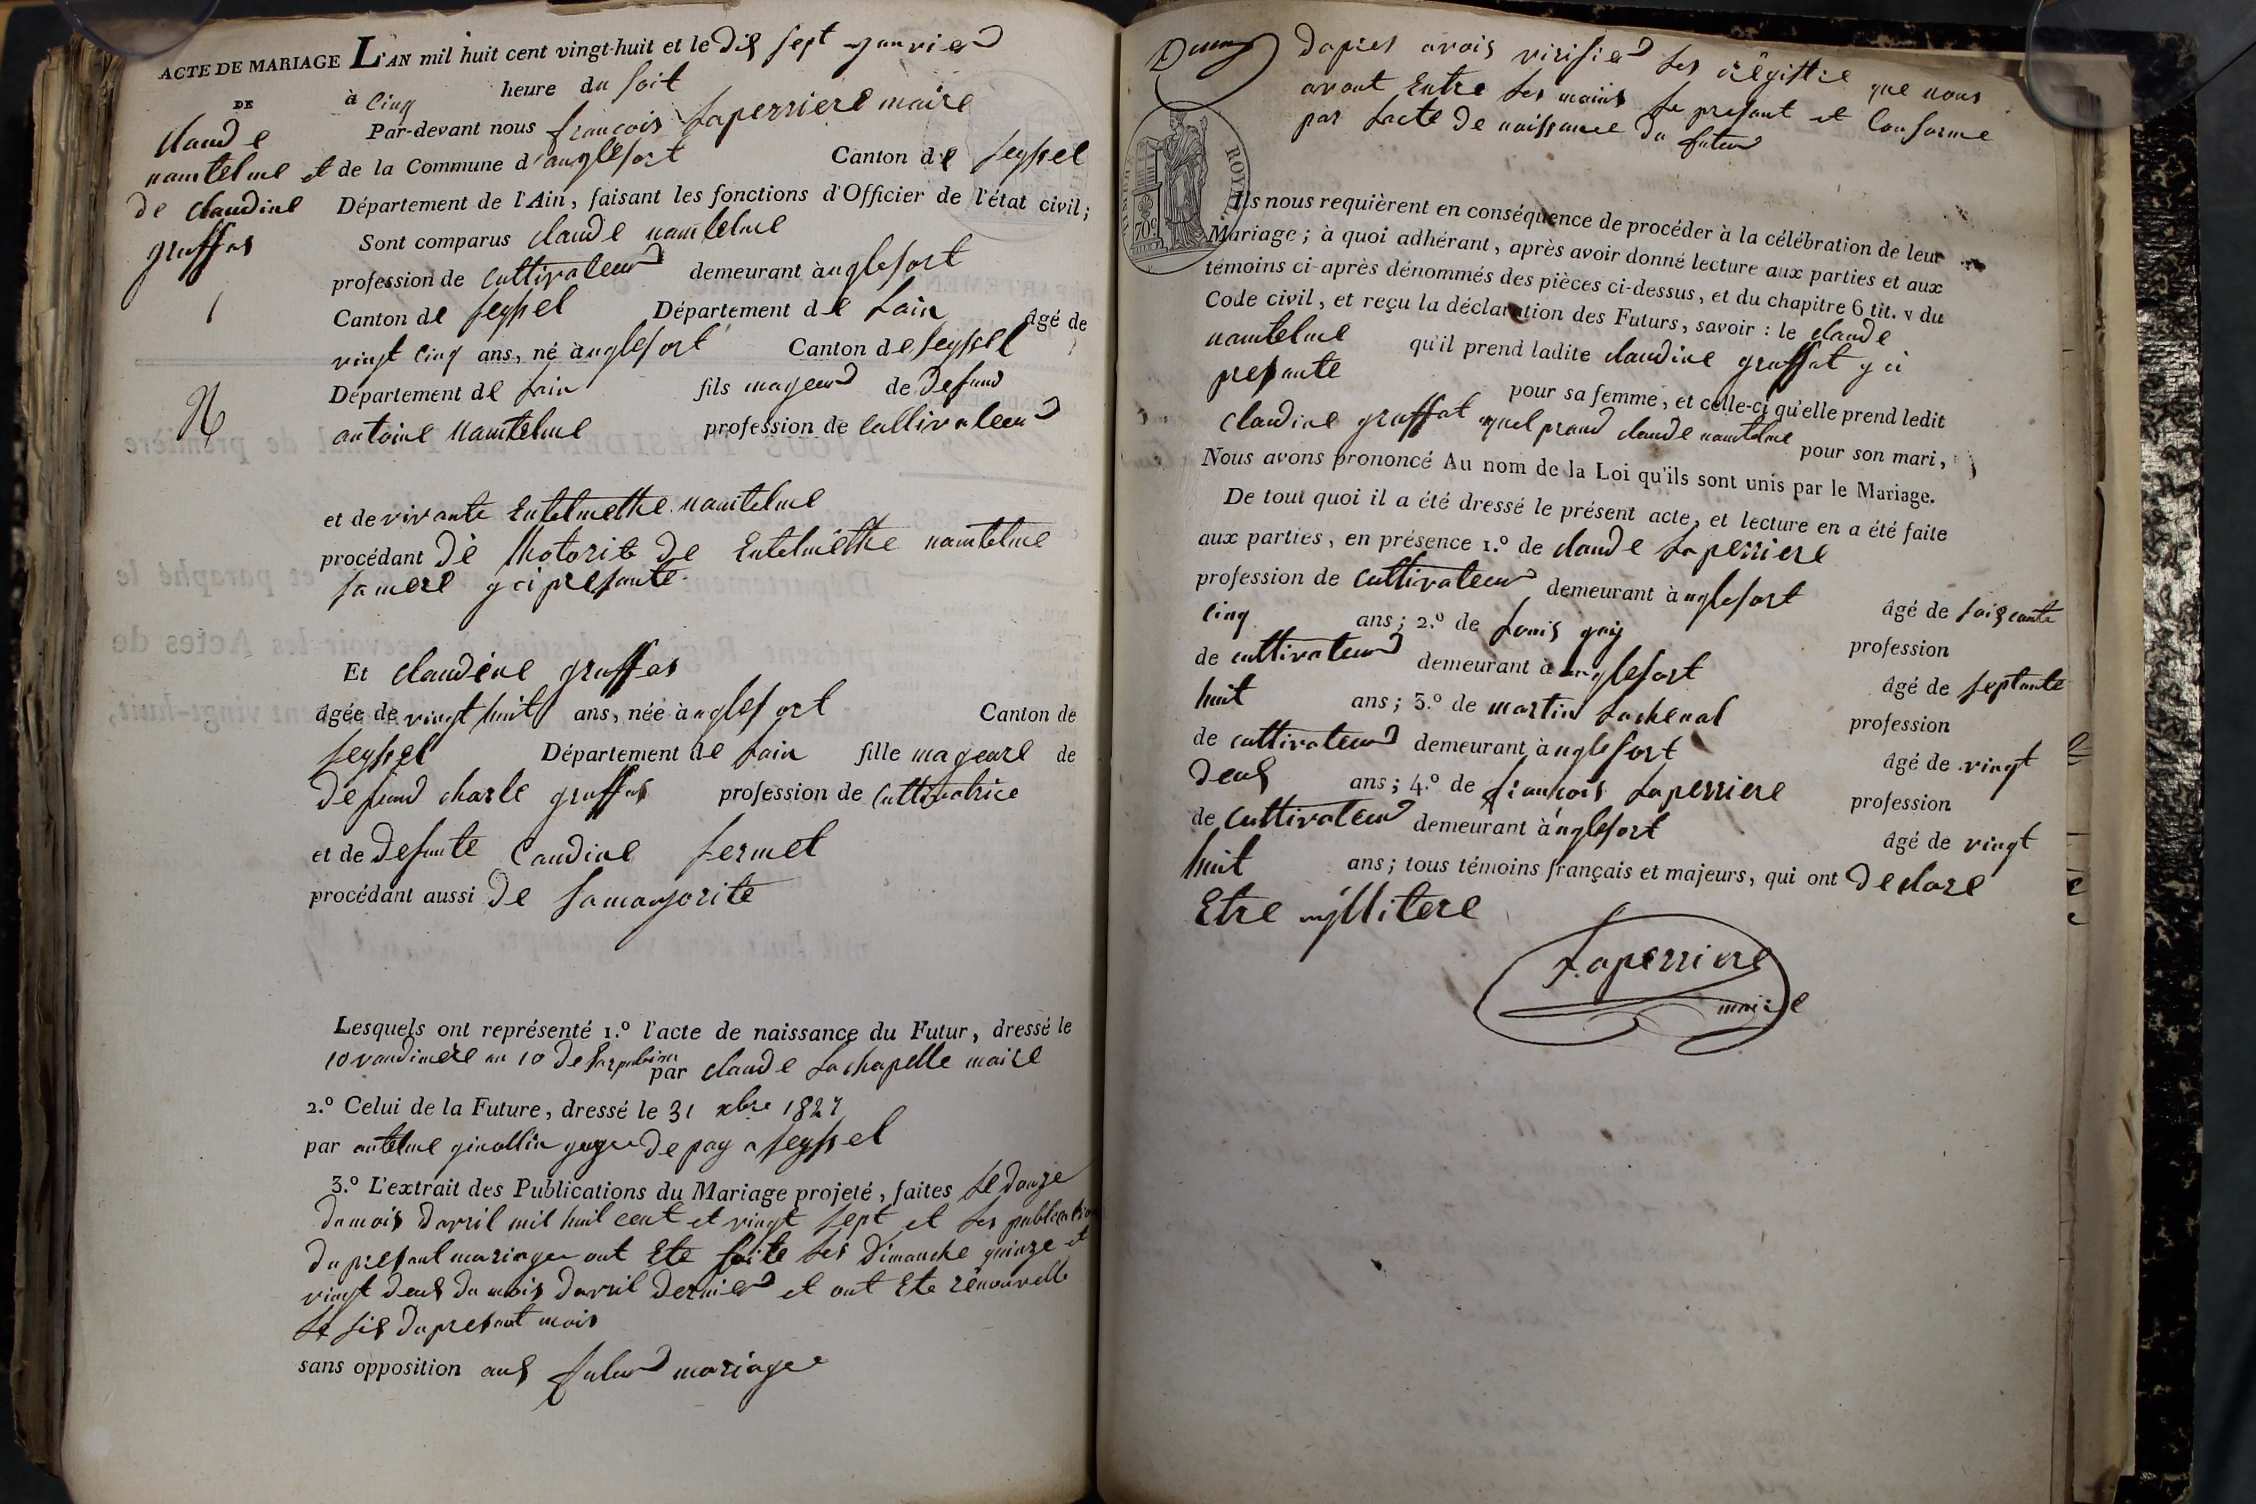 ACTE DE MARIAGE L'AN mil huit cent vingt-huit et le dis sept janvier
DE
à cinq heure du soit
claude
Par-devant nous francois Laperriere maire
namtelme et
de la Commune d'anglefort Canton de seyssel
de claudine
Département de l'Ain, faisant les fonctions d'Officier de l'état civil;
graffas
Sont comparus claude namtelme
profession de cultivateur demeurant à anglefort
1
Canton de seyssel Département de Lain âgé de
vingt cinq ans, né à anglefort Canton de seyssel
N
Département de Lain fils mageur de defund
antoine Namtelme profession de cultivateur
et de vivante Entelmethe namtelme
procédant de Motorite de Entelmethe namtelme
sa mere y ci presante
Et claudine graffas
âgée de vingt huit ans, née à anglefort Canton de
seyssel Département de Lain fille mageure de
defund charle graffas profession de cultivatrice
et de defunte Caudine fermet
procédant aussi de sa maujorite
Lesquels ont représenté 1.º l'acte de naissance du Futur, dressé le
10 vandimere an 10 de par claude Lachapelle maire
2.º Celui de la Future, dressé le 31 xbre 1827
par antelme ginollin de pay a seyssel
3.º L'extrait des Publications du Mariage projeté, faites Le douze
du mois davril mil huit cent et vingt sept et Les publication
du presant mariage ont Ete faite Les dimanche quinze et
vingt deus du mois davril dernier et ont Ete renouvelle
Le sis du presant mois
sans opposition aus futur mariage
dapres avois virifier Les règistre que nous
avont Entre Les mains Le presant et Conforme
par Lacte de naissance du futur
ROYAL
70c
Ils nous requièrent en conséquence de procéder à la célébration de leur
Mariage; à quoi adhérant, après avoir donné lecture aux parties et aux
témoins ci-après dénommés des pièces ci-dessus, et du chapitre 6 tit. v du
Code civil, et reçu la déclaration des Futurs, savoir : le claude
namtelme qu'il prend ladite claudine graffat y ci
presante pour sa femme, et celle-ci qu'elle prend ledit
claudine graffat quel prand claude namtelme pour son mari,
Nous avons prononcé Au nom de la Loi qu'ils sont unis par le Mariage.
De tout quoi il a été dressé le présent acte, et lecture en a été faite
aux parties, en présence 1.º de claude Laperriere
profession de cultivateur demeurant à anglefort âgé de soiscante
cinq ans; 2.º de Louis gay profession
de cultivateur demeurant à anglefort âgé de septante
huit ans; 3.º de martin Lachenal profession
de cultivateur demeurant à anglefort âgé de vingt
deus ans; 4.º de francois Laperriere profession
de cultivateur demeurant à anglefort âgé de vingt
huit ans; tous témoins français et majeurs, qui ont declare
Etre yllitere
Laperriere
maire